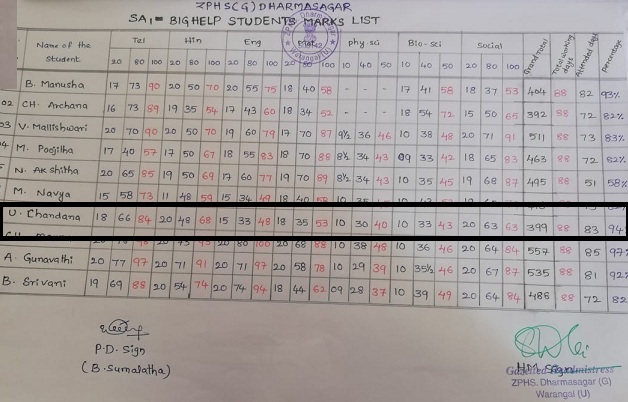 ZPHS(G) DHARMASAGAR
SA1 = BIGHELP STUDENTS MARKS LIST
Name of the Student Tel Hin Eng phy.sci Bio-sci Social Grand Total Total working days Attended days percentage
20 80 100 20 50 20 80 100 20 80 100 10 40 50 10 40 50 20 80 100
B. Manusha 17 73 90 20 50 70 20 55 75 18 40 58 - - - 17 41 58 18 37 53 404 88 82 93%
02 CH. Archana 16 73 89 19 35 54 17 43 60 18 34 52 - - - 18 54 72 15 50 65 392 88 72 82%
03 V. Malleshwari 20 70 90 20 50 70 19 60 79 17 70 87 9½ 36 46 10 38 48 20 71 91 511 88 73 83%
M. Poojitha 17 40 57 17 50 67 18 55 83 18 70 88 8½ 34 43 09 33 42 18 65 83 463 88 72 82%
N. Akshitha 20 65 85 19 50 69 17 60 77 19 70 89 8½ 34 43 10 35 45 19 68 87 495 88 51 58%
M. Navya 15 58 73 11 48 59 15 34 49 18 40 58
U. Chandana 18 66 84 20 48 68 15 33 48 18 35 53 10 30 40 10 33 43 20 63 63 399 88 83 94
20 80 100 20 68 88 10 38 48 10 36 46 20 64 84 557 88 85 97%
A. Gunavathi 20 77 97 20 71 91 20 71 97 20 58 78 10 29 39 10 35½ 46 20 67 87 535 88 81 92%
B. Srivani 19 69 88 20 54 74 20 74 94 18 44 62 09 28 37 10 39 49 20 64 84 488 88 72 82
P.D. Sign
(B. Sumalatha)
HM Sign
Gazetted Headmistress
ZPHS. Dharmasagar (G)
Warangal (U)